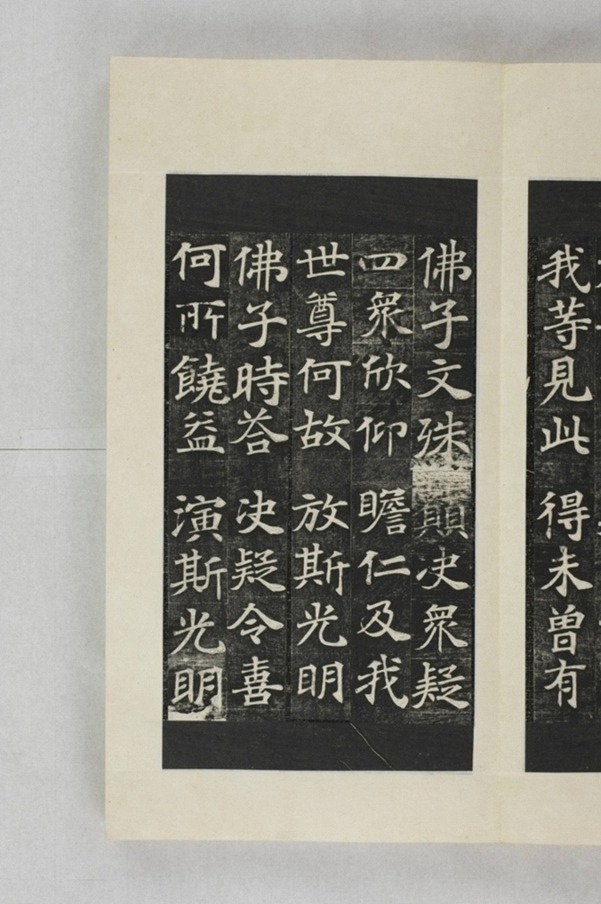 我等見此 得未曽有
佛子文殊 願决衆疑
四衆欣仰 瞻仁及我
世尊何故 放斯光明
佛子時荅 决疑令喜
何所饒益 演斯光明